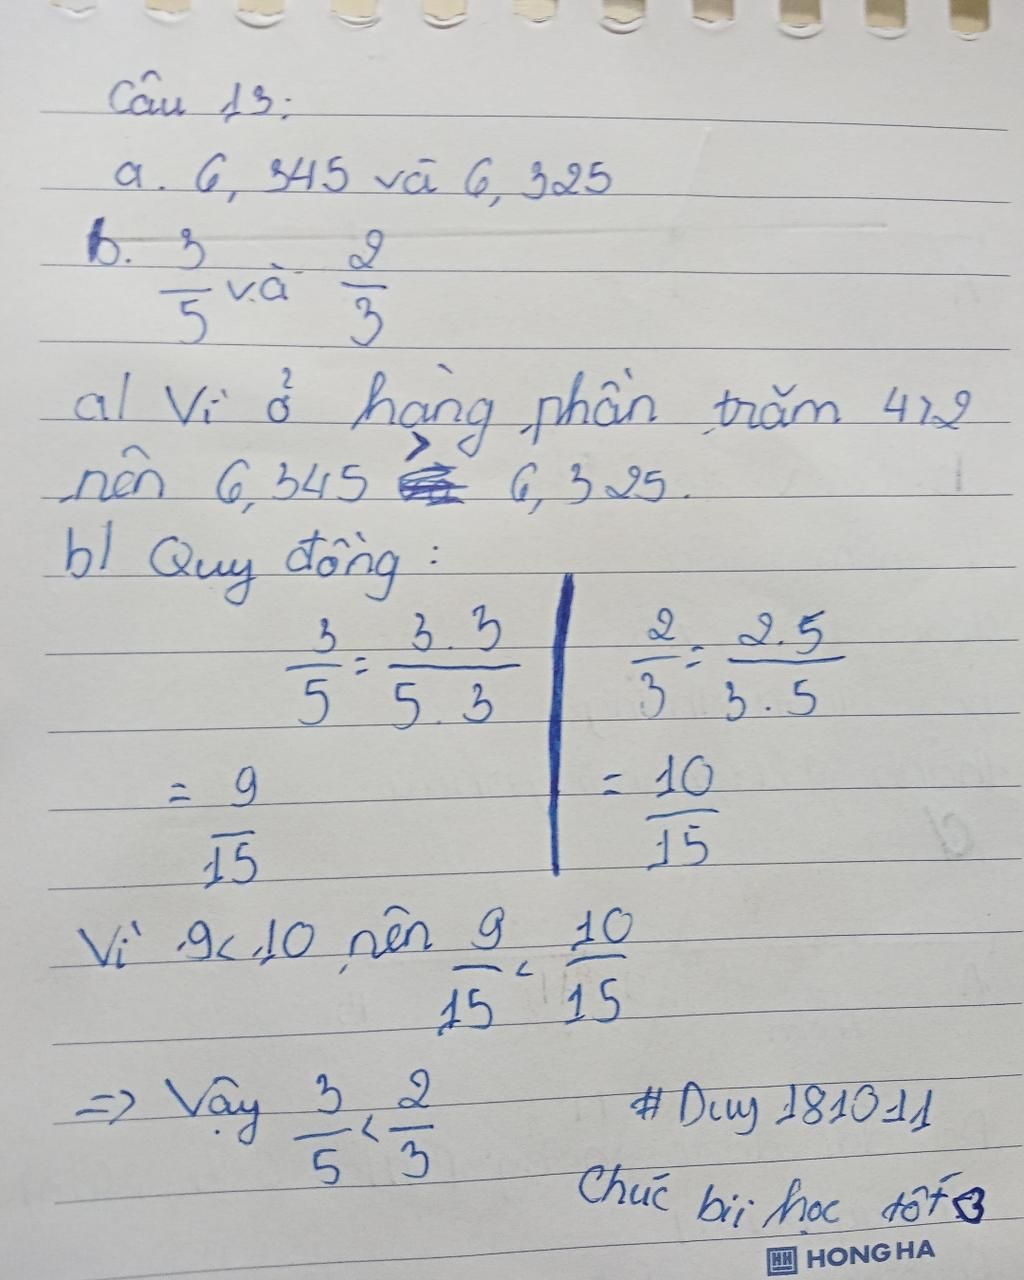 Câu 13:
a. 6,345 và 6,325
b. 3/5 và 2/3
a/ Vì ở hàng phần trăm 4>2
nên 6,345 > 6,325.
b/ Quy đồng:
3/5 = 3.3/5.3 | 2/3 = 2.5/3.5
= 9/15 | = 10/15
Vì 9<10 nên 9/15 < 10/15
=> Vậy 3/5 < 2/3
# Duy 181011
Chúc bii học tốt <3
HH HONG HA